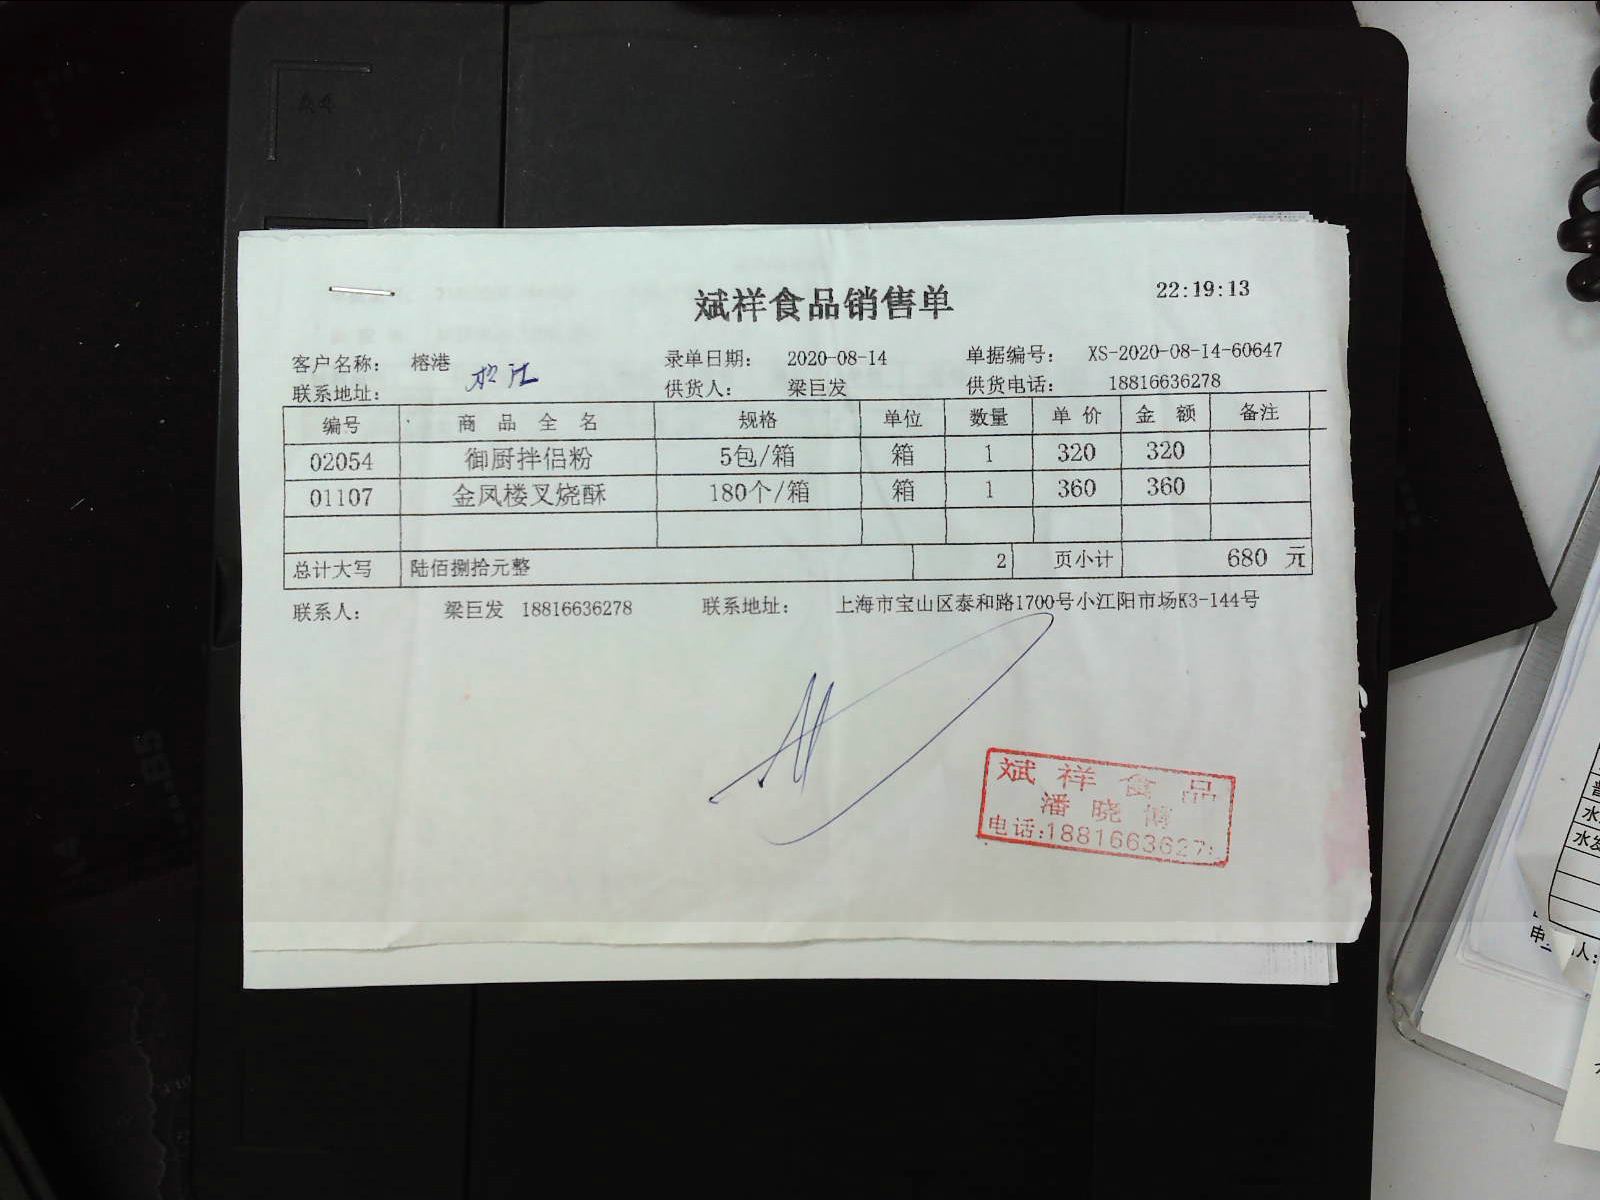 A4
斌祥食品销售单 22:19:13
客户名称: 榕港 录单日期: 2020-08-14 单据编号: XS-2020-08-14-60647
联系地址: 松江 供货人: 梁巨发 供货电话: 18816636278
编号 商品全名 规格 单位 数量 单价 金额 备注
02054 御厨拌侣粉 5包/箱 箱 1 320 320
01107 金凤楼叉烧酥 180个/箱 箱 1 360 360
总计大写 陆佰捌拾元整 2 页小计 680 元
联系人: 梁巨发 18816636278 联系地址: 上海市宝山区泰和路1700号小江阳市场K3-144号
斌祥食品
潘晓博
电话:18816636278
水发